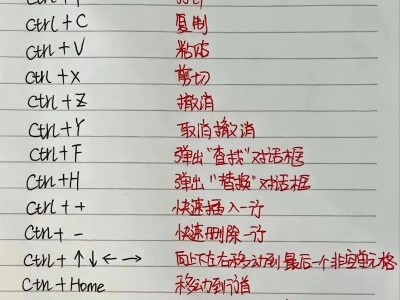 Ctrl + C 复制
Ctrl + V 粘贴
Ctrl + X 剪切
Ctrl + Z 撤消
Ctrl + Y 取消撤消
Ctrl + F 弹出"查找"对话框
Ctrl + H 弹出"替换"对话框
Ctrl + + 快速插入一行
Ctrl + - 快速删除一行
Ctrl + ↑ ↓ ← → 向上下左右移动到最后一个非空单元格
Ctrl + Home 移动到行首